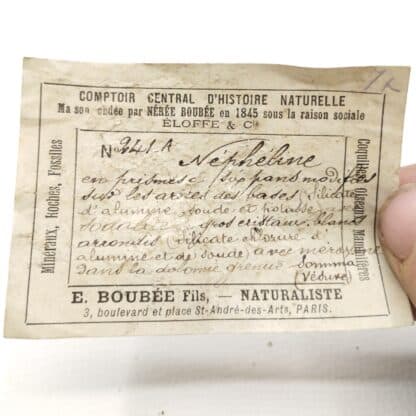 COMPTOIR CENTRAL D'HISTOIRE NATURELLE
Maison fondée par NÉRÉE BOUBÉE en 1845 sous la raison sociale
ÉLOFFE & Cie
Minéraux, Roches, Fossiles
Nº 241 A
Néphéline
en prismes hexagonaux modifiés
sur les arêtes des bases (silicate
d'alumine, soude et potasse)
Sodalite gros cristaux blancs
arrondis (silicate chlorure d'
alumine et de soude) avec méroxène
dans la dolomie grenue Somma
(Vésuve)
Coquilles, Oiseaux, Mammifères
E. BOUBÉE Fils, — NATURALISTE
3, boulevard et place St-André-des-Arts, PARIS.